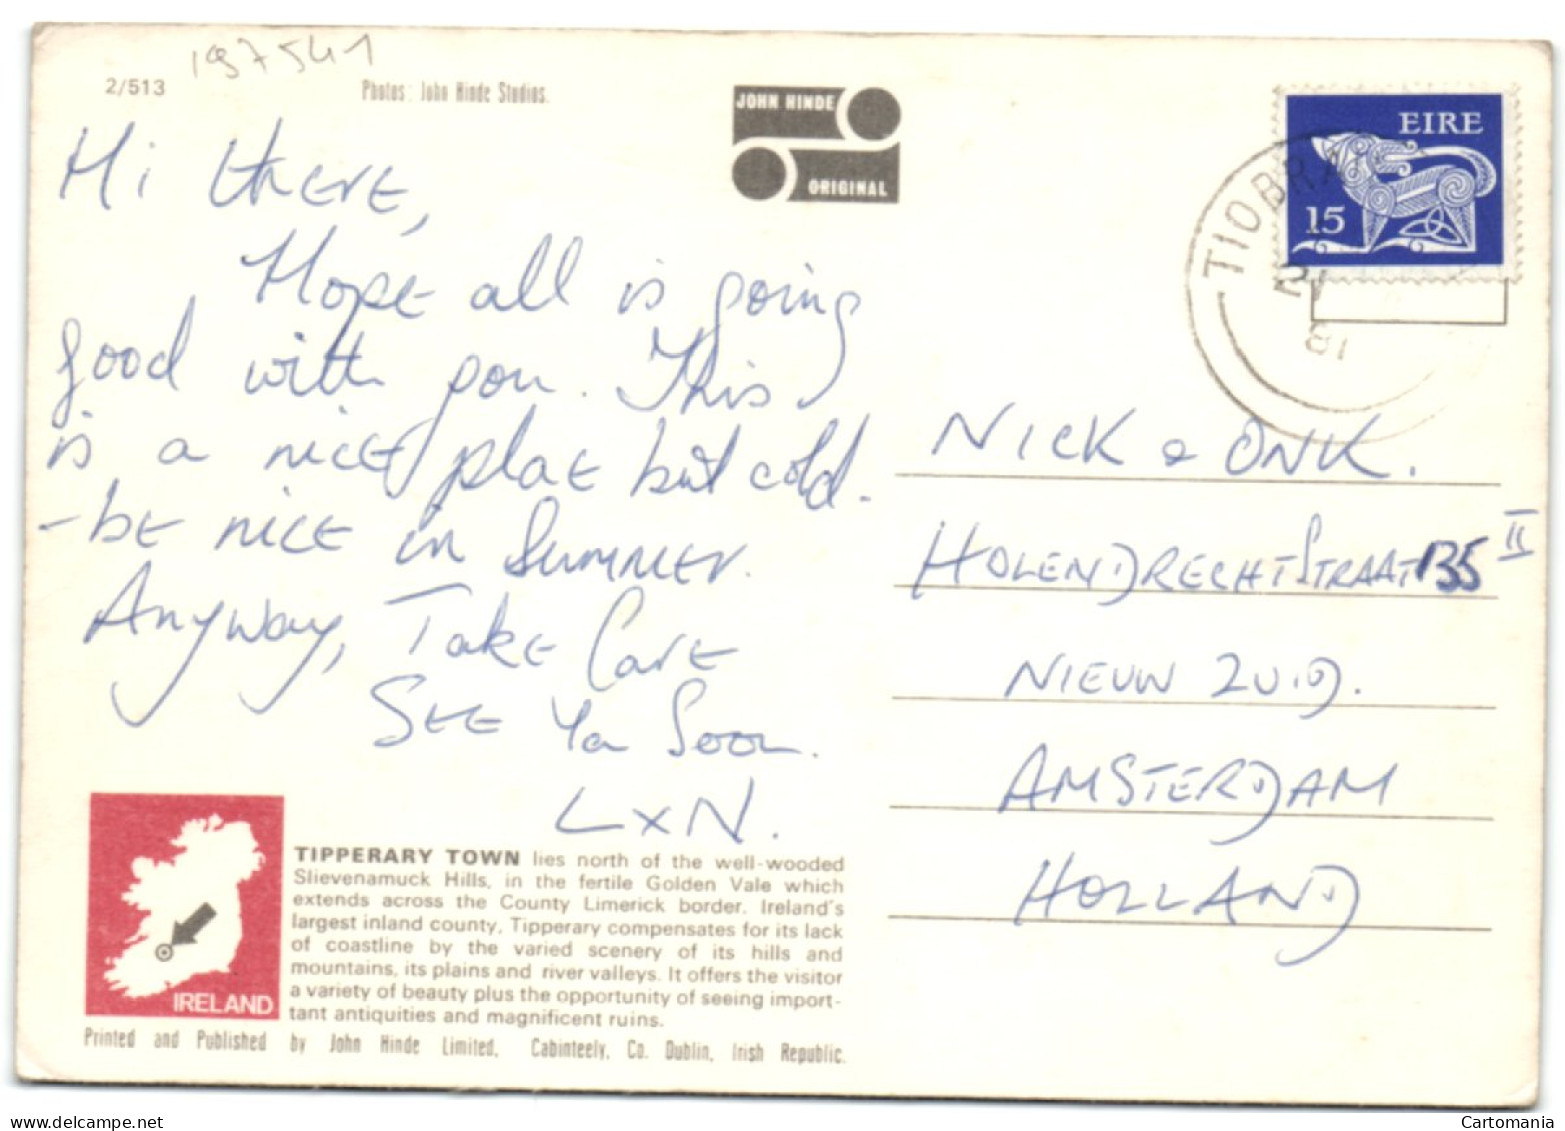 197541
2/513
Photos: John Hinde Studios.
JOHN HINDE
ORIGINAL
EIRE
15
TIOBRA
81
Hi there,
Hope all is going
good with you. This
is a nice place but cold.
- be nice in Summer.
Anyway, Take Care
See Ya Soon.
L x N.
NICK & ONK.
HOLENDRECHTSTRAAT 135 II
NIEUW ZUID.
AMSTERDAM
HOLLAND
IRELAND
TIPPERARY TOWN lies north of the well-wooded
Slievenamuck Hills, in the fertile Golden Vale which
extends across the County Limerick border. Ireland's
largest inland county, Tipperary compensates for its lack
of coastline by the varied scenery of its hills and
mountains, its plains and river valleys. It offers the visitor
a variety of beauty plus the opportunity of seeing import-
tant antiquities and magnificent ruins.
Printed and Published by John Hinde Limited, Cabinteely, Co. Dublin, Irish Republic.
delcampe.net
Cartomania